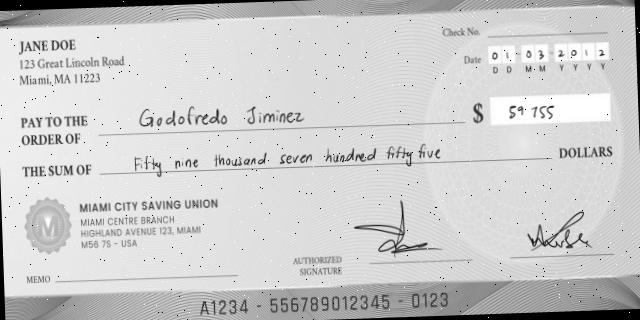 Check No.
JANE DOE
123 Great Lincoln Road
Miami, MA 11223
Date 01-03-2012
D D M M Y Y Y Y
PAY TO THE ORDER OF Godofredo Jiminez $ 59.755
THE SUM OF Fifty nine thousand seven hundred fifty five DOLLARS
M
MIAMI CITY SAVING UNION
MIAMI CENTRE BRANCH
HIGHLAND AVENUE 123, MIAMI
M56 7S - USA
AUTHORIZED SIGNATURE
MEMO
A1234 - 556789012345 - 0123